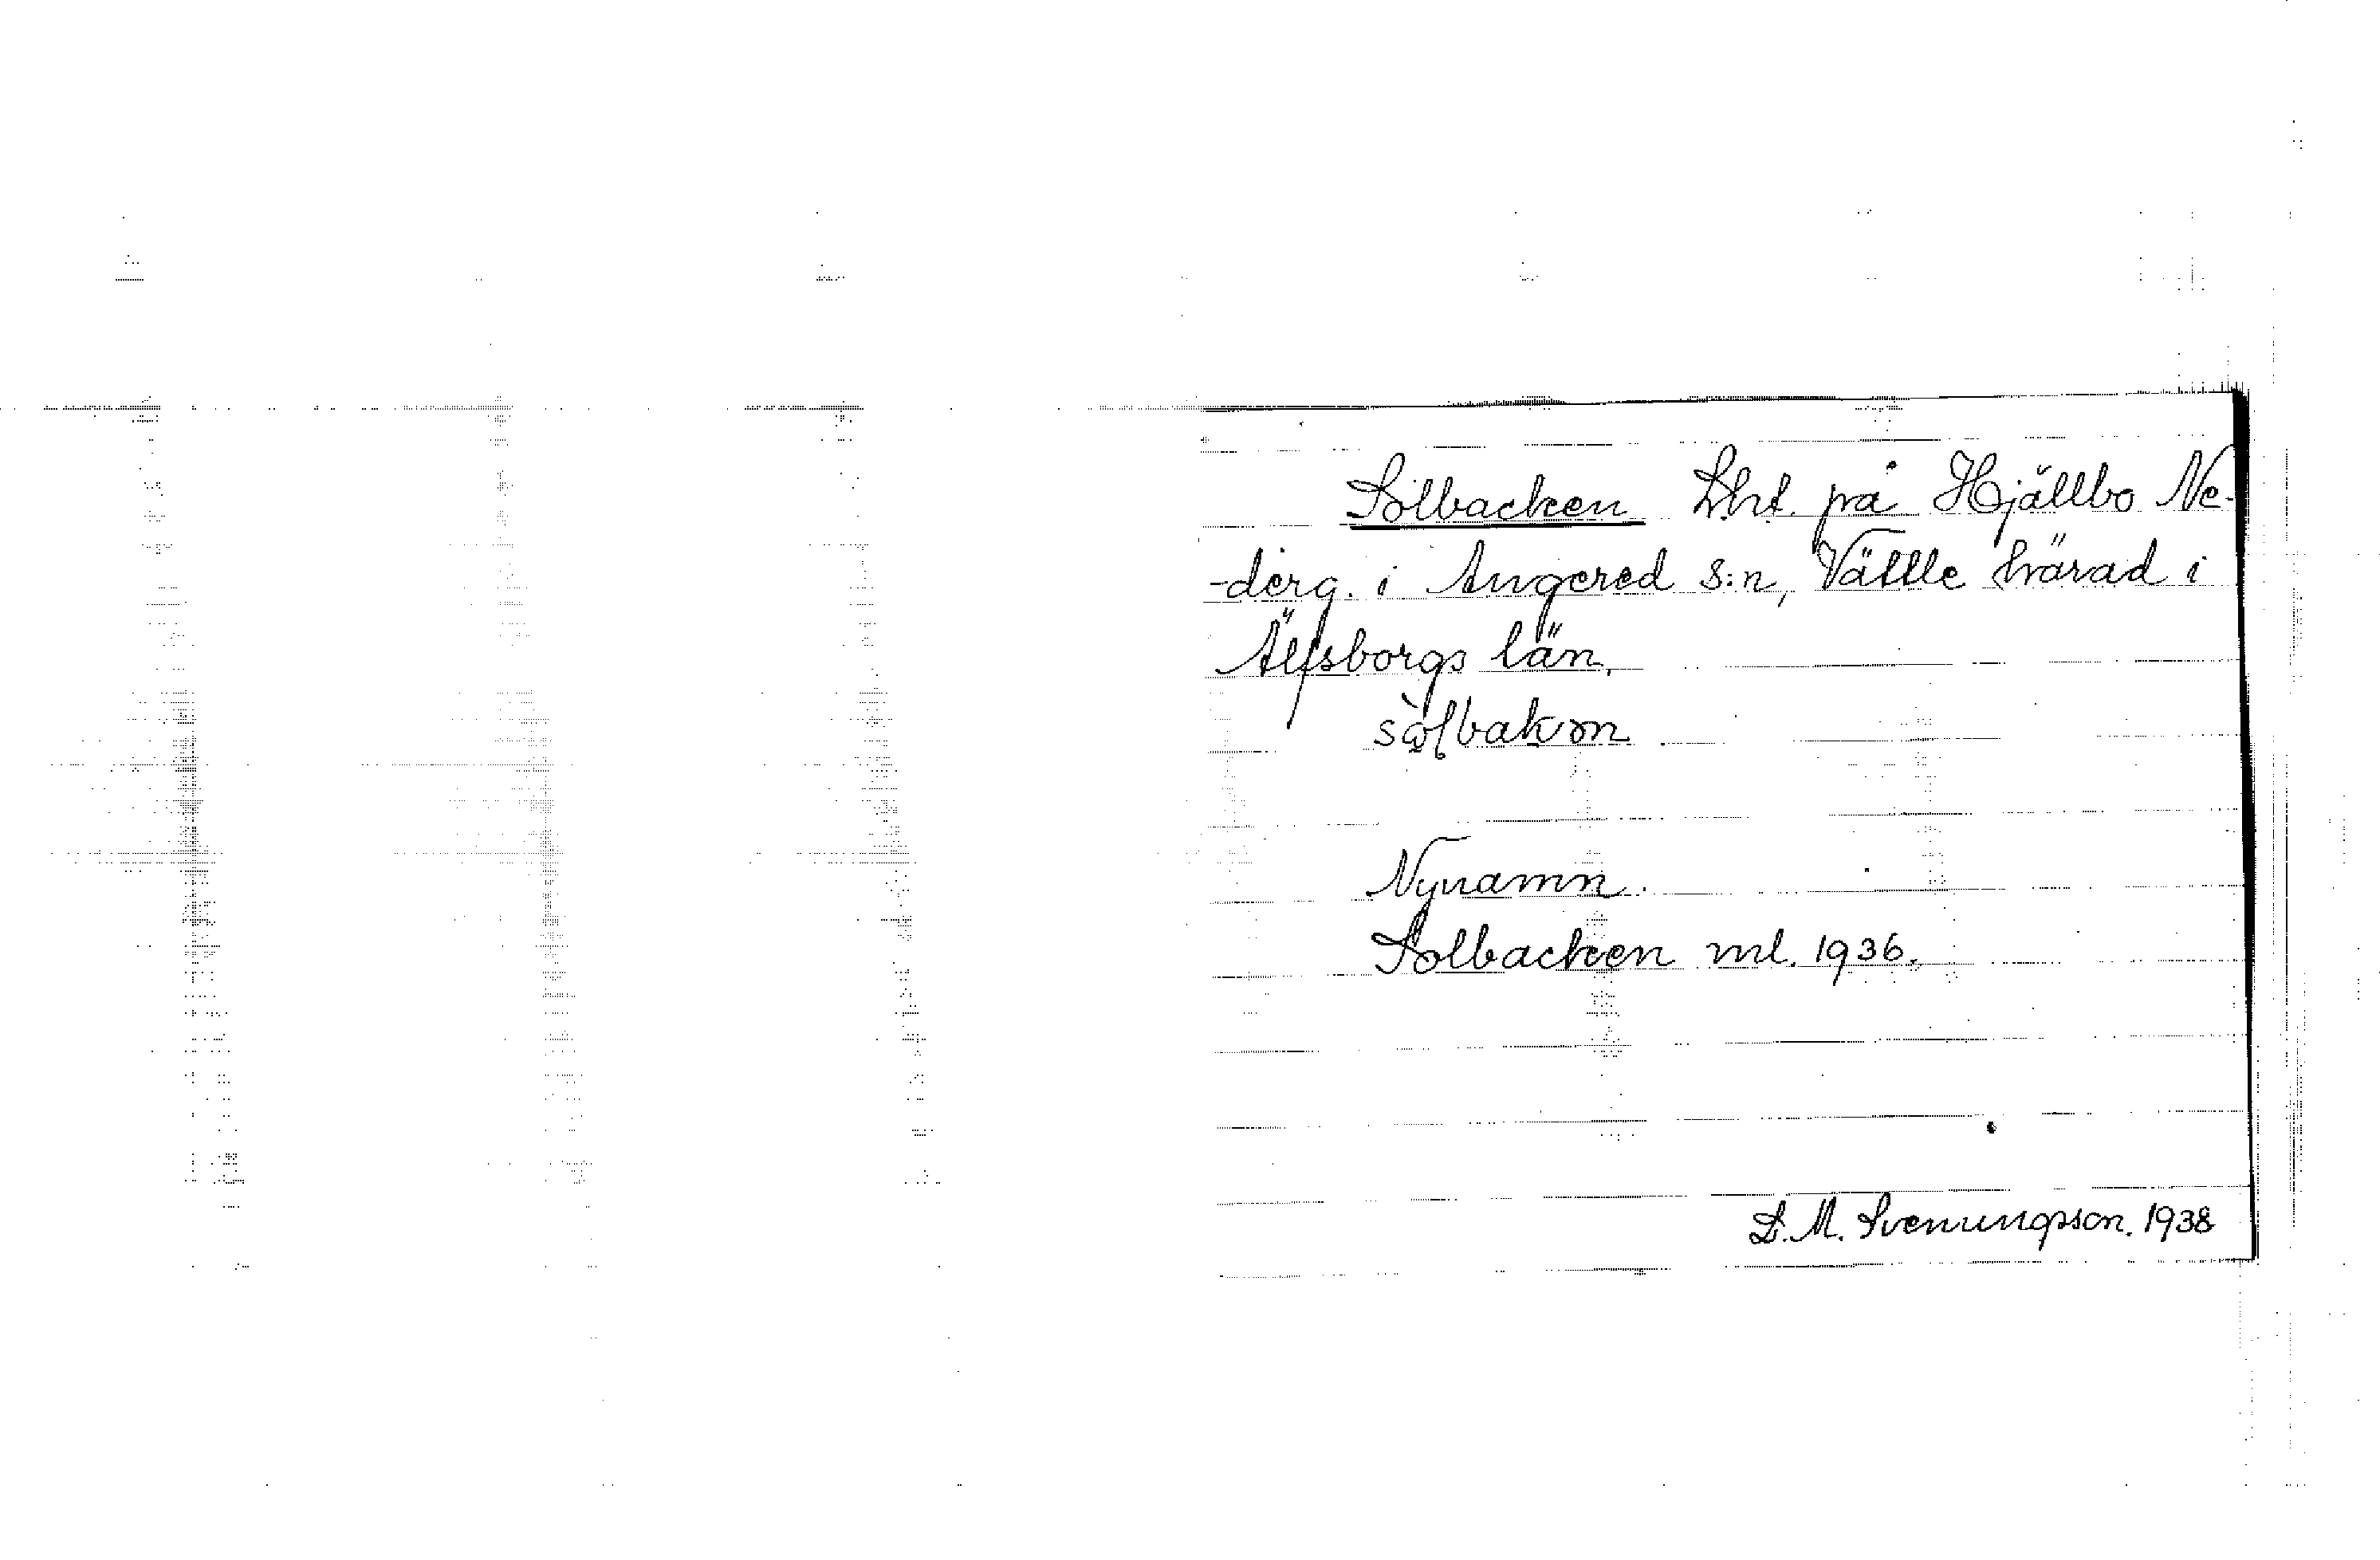 Solbacken Lht. på Hjällbo Ne-
-derg. i Angered s:n, Vättle härad i
Älfsborgs län.
Nynamn.
Solbacken ml. 1936.
D. M. Svenungsson. 1938